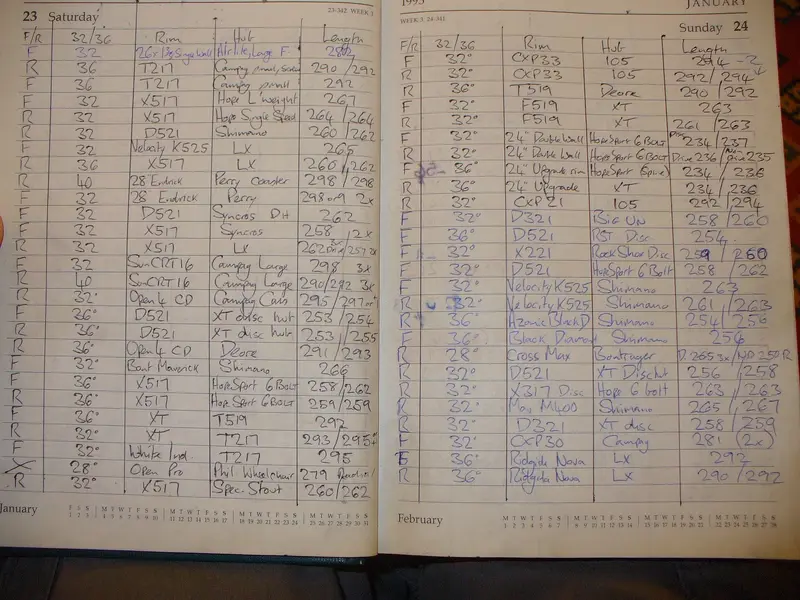 23 Saturday
23-342 WEEK 3
F/R 32/36 Rim Hub Length
F 32 Large F
R 36 T217 Campy 290/292
F 36 T217 Campy small 292
F 32 X517 Hope L'weight 267
R 32 X517 Hope Single Speed 264/264
R 32 D521 Shimano 260/262
F 32 Velocity K525 LX 265
R 36 X517 LX 260/262
R 40 28 Endrick Perry Coaster 298/298
F 32 28 Endrick Perry 298 2x
F 32 D521 Syncros DH 262
R 32 X517 Syncros 258/2x
R 32 X517 LX 262
F 32 Sun CRT16 Campy Large 298 3x
R 40 Sun CRT16 Campy Large 290/292 3x
R 32° Open 4 CD Campy 295/297
F 26° D521 XT disc hub 253/254
R 36° D521 XT disc hub 253/255
R 36° Open 4 CD Deore 291/293
F 32° Bont Maverick Shimano 266
F 36° X517 Hope Sport 6 BOLT 258/262
R 36° X517 Hope Sport 6 BOLT 259/259
F 36° XT T519 292
R 32° XT T217 293/295
F 32° White Ind. T217 295
28° Open Pro Phil 279
R 32° X517 Spec. Stout 260/262
January
1993 JANUARY
WEEK 3 24-341
Sunday 24
F/R 32/36 Rim Hub Length
F 32° CXP33 105 294 -2
R 32° CXP33 105 292/294
R 36° T519 Deore 290/292
F 32° F519 XT 263
R 32° F519 XT 261/263
F 32° 24" Double Wall Hope Sport 6 Bolt 234/237
R 32° 24" Double Wall Hope Sport 6 Bolt 236 235
F 36° 24" Upgrade rim Hope Sport 234/236
R 36° 24" Upgrade XT 234/236
R 32° CXP21 105 292/294
F 32° D321 Big Un 258/260
F 36° D521 RST Disc 254
F 32° X221 Rock Shox Disc 259/260
F 32° D521 Hope Sport 6 Bolt 258/262
F 32° Velocity K525 Shimano 263
R 32° Velocity K525 Shimano 261/263
R 36° Shimano 254/256
F 36° Black Diamond Shimano 256
R 28° Cross Max Bontrager
R 32° D521 XT Disc hub 256/258
R 32° X317 Disc Hope 6 bolt 263/263
R 32° Mav M400 Shimano 265/267
R 32° D321 XT disc 258/259
F 32° CXP30 Campy 281 (2x)
F 36° Rigida Nova LX 292
R 36° Rigida Nova LX 290/292
February